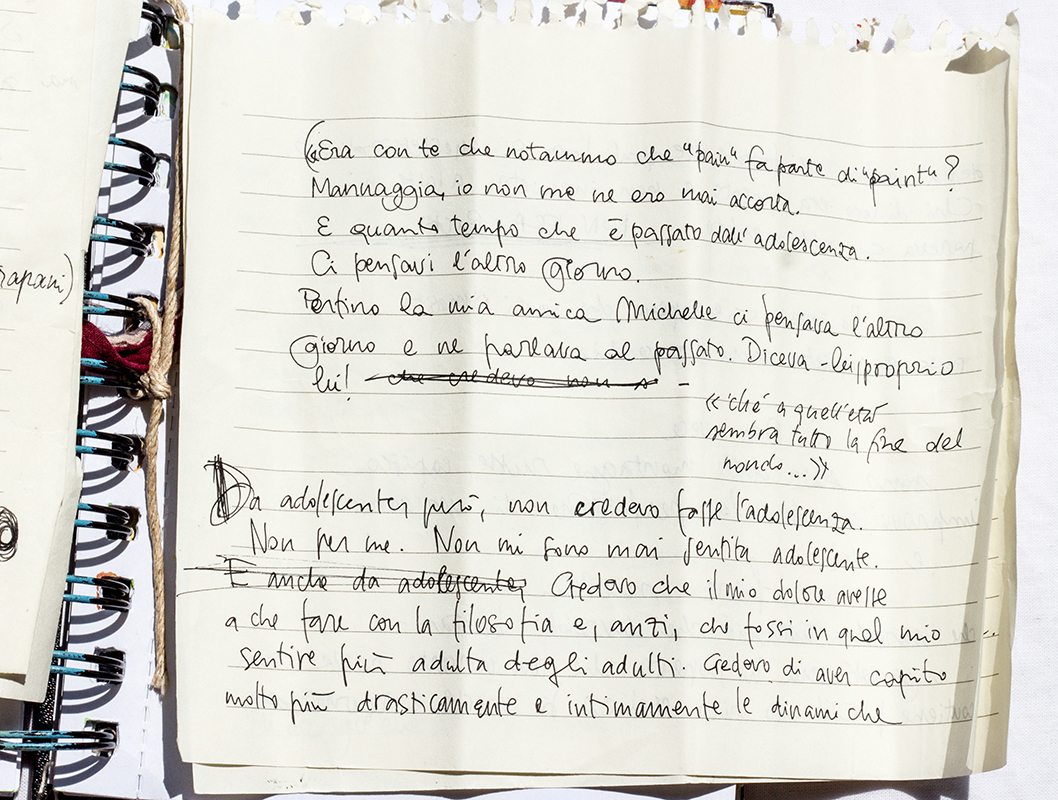 rapani)
(«Era con te che notammo che "pain" fa parte di "paint"?
Mannaggia, io non me ne ero mai accorta.
E quanto tempo che è passato dall'adolescenza.
Ci pensavi l'altro giorno.
Perfino la mia amica Michelle ci pensava l'altro
giorno e ne parlava al passato. Diceva - lei, proprio
lei! che credevo non s -
«ché a quell'età
sembra tutto la fine del
mondo...»
Da adolescente, però, non credevo fosse l'adolescenza.
Non per me. Non mi sono mai sentita adolescente.
E anche da adolescente, Credevo che il mio dolore avesse
a che fare con la filosofia e, anzi, che fossi in quel mio
sentire più adulta degli adulti. Credevo di aver capito
molto più drasticamente e intimamente le dinamiche